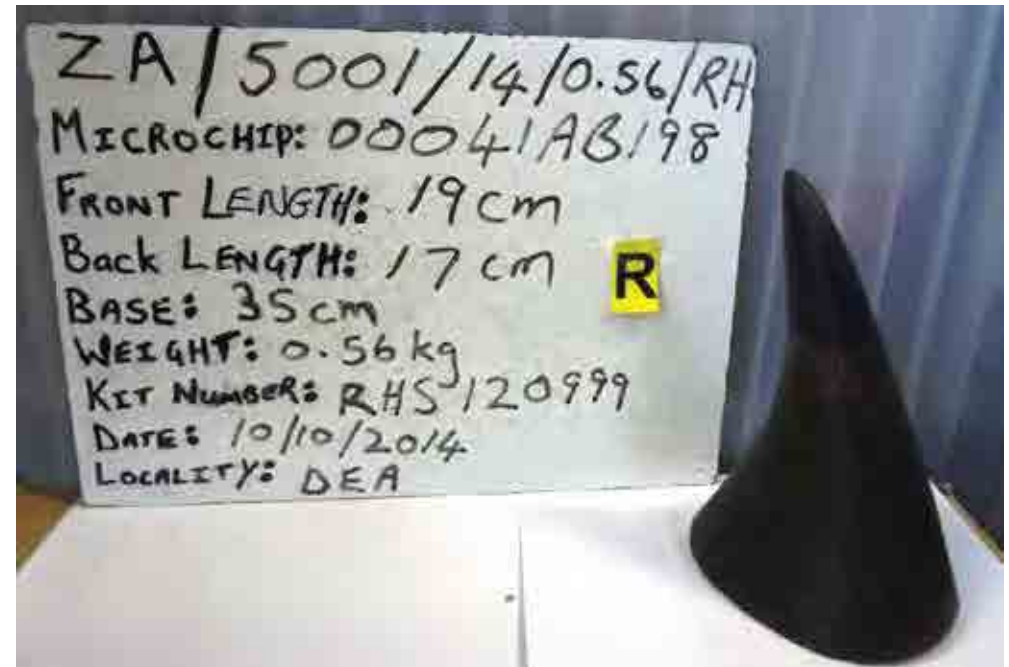 ZA/5001/14/0.56/RH
MICROCHIP: 00041AB198
FRONT LENGTH: 19cm
Back LENGTH: 17 cm
R
BASE: 35cm
WEIGHT: 0.56 kg
KIT NUMBER: RHS 120999
DATE: 10/10/2014
LOCALITY: DEA